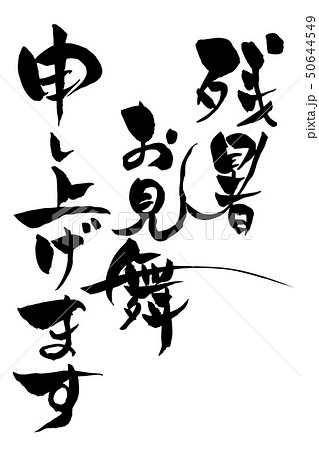 残暑
お見舞
申し上げます
PIXTA
pixta.jp - 50644549